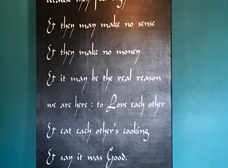 they
& they may make no sense
& they make no money
& it may be the real reason
we are here : to Love each other
& eat each other's cooking
& say it was Good.